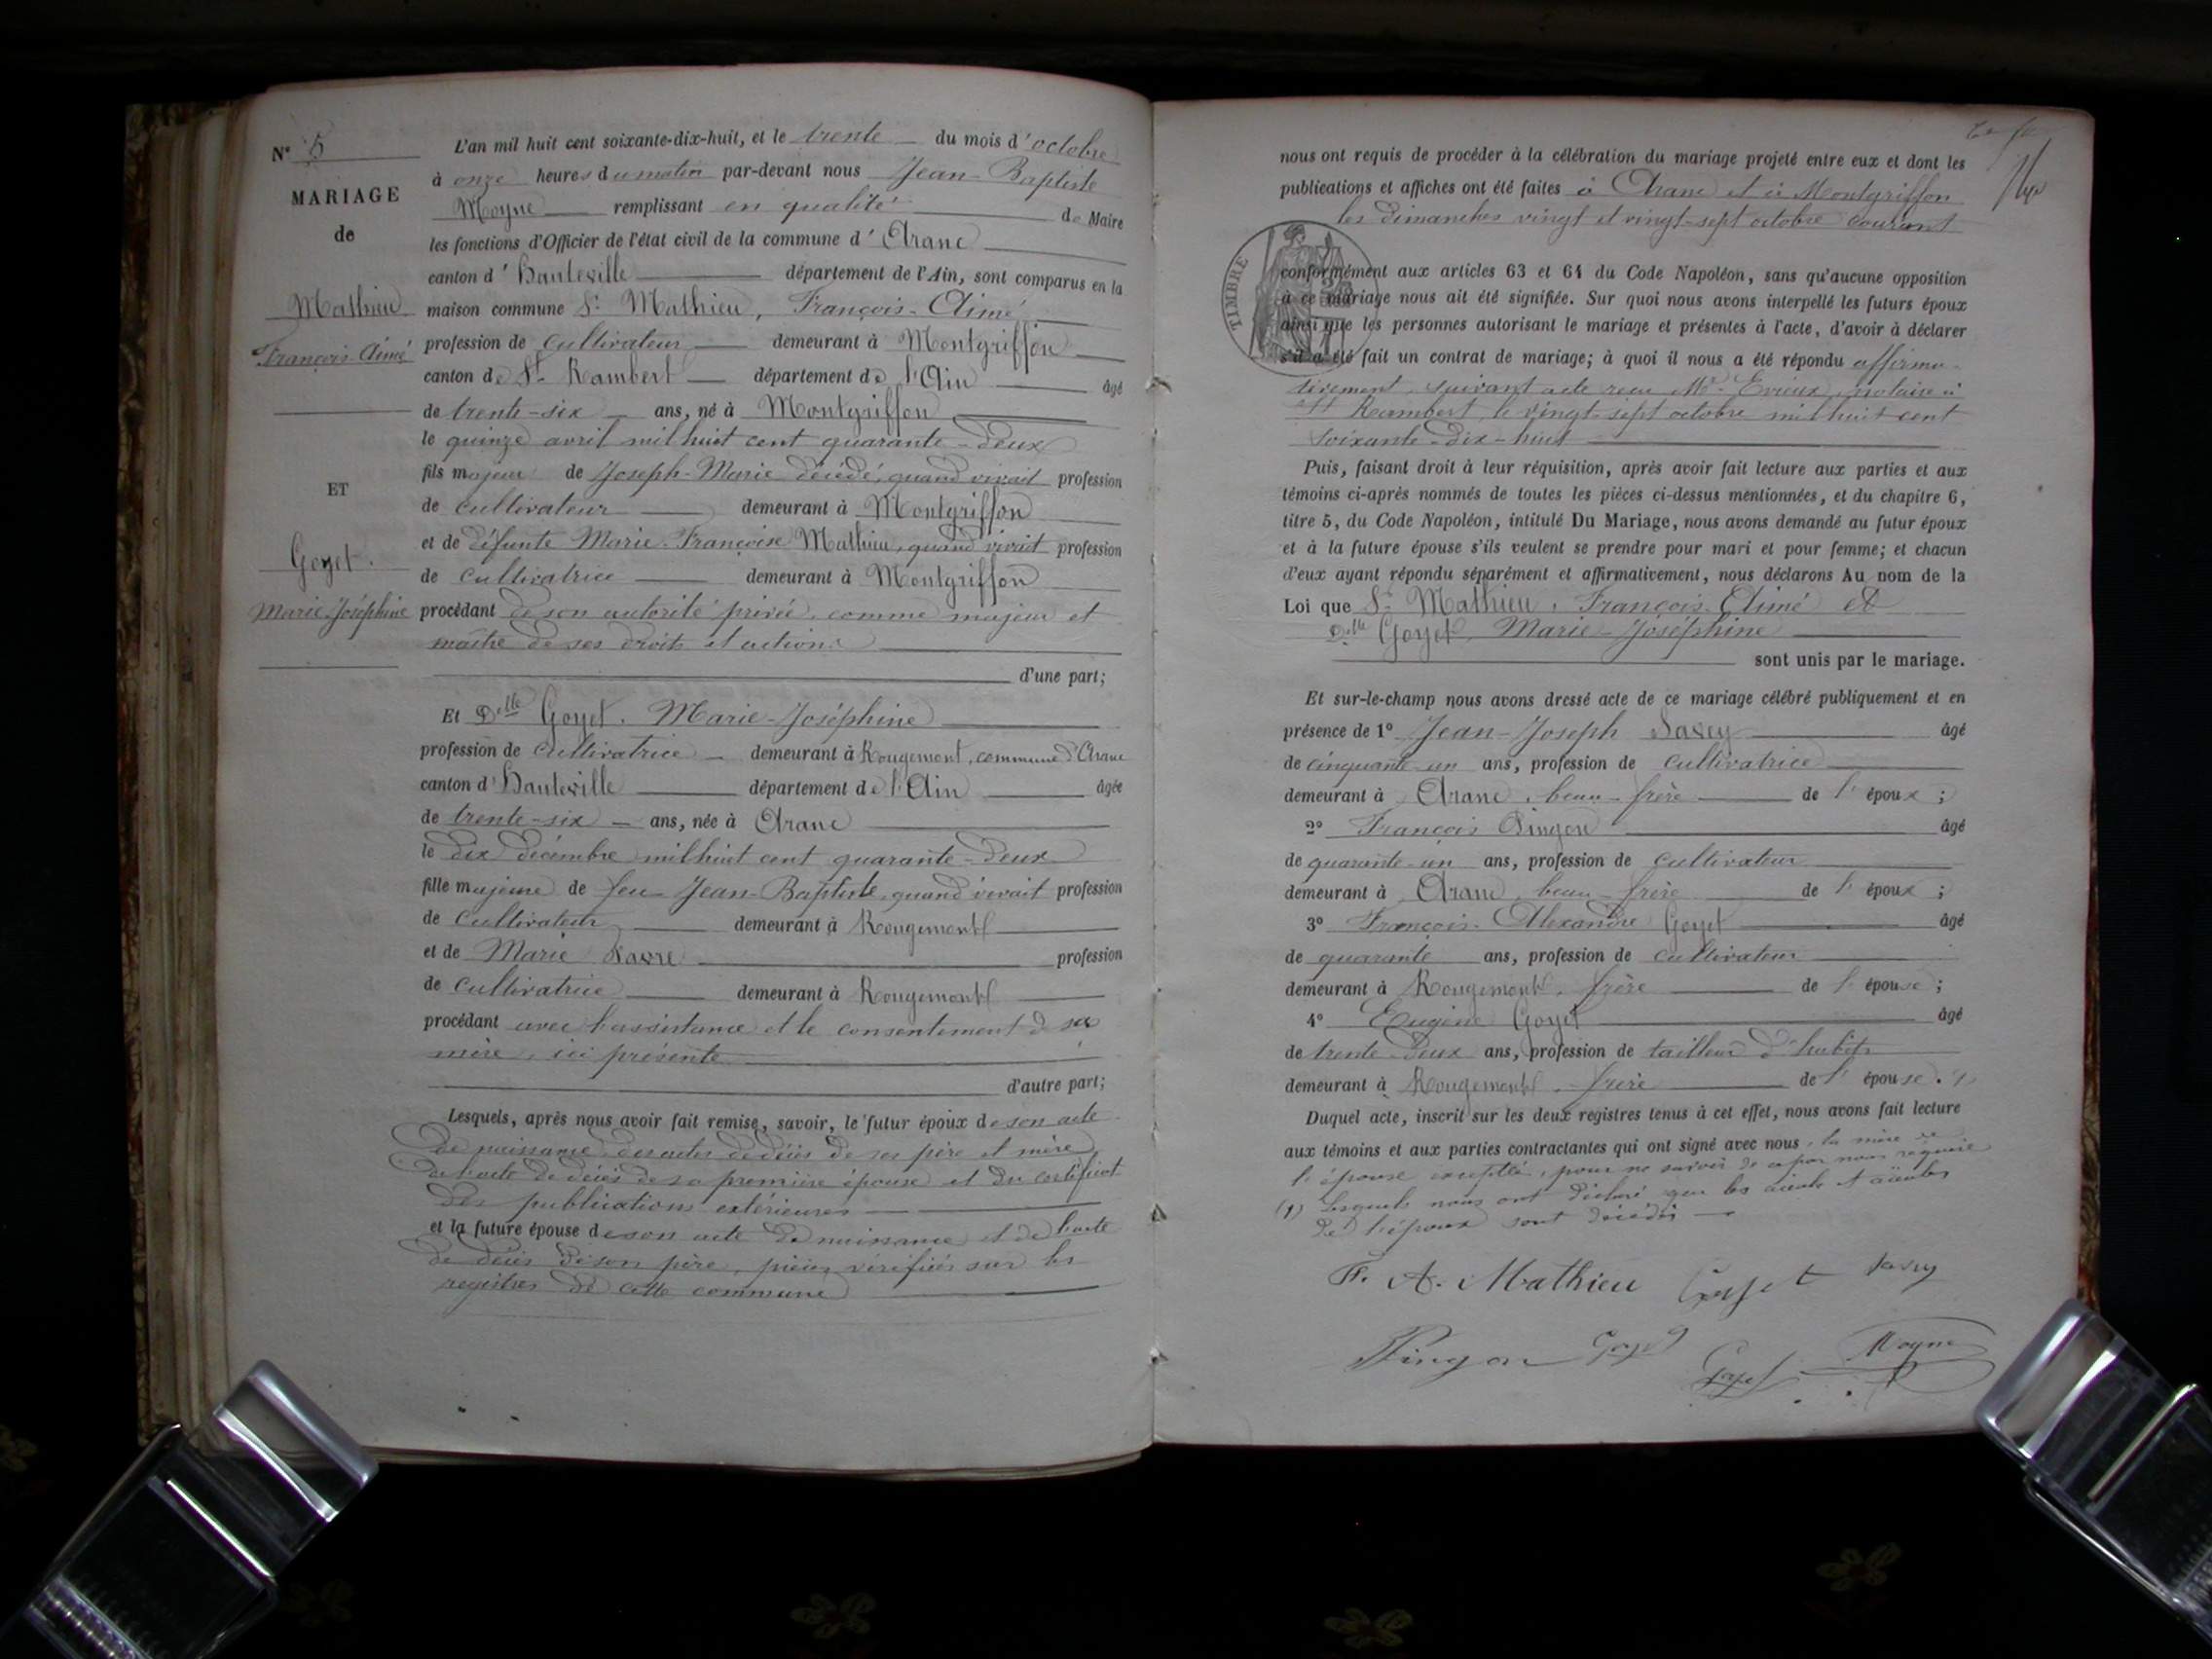 N° 5
MARIAGE
de
Mathieu
François-Aimé
ET
Goyet.
Marie-Joséphine
L'an mil huit cent soixante-dix-huit, et le trente du mois d'octobre
à onze heures du matin par-devant nous Jean-Baptiste
Moyne remplissant en qualité de Maire
les fonctions d'Officier de l'état civil de la commune d'Aranc
canton d'Hauteville département de l'Ain, sont comparus en la
maison commune Sr Mathieu, François-Aimé
profession de cultivateur demeurant à Montgriffon
canton de St Rambert département de l'Ain âgé
de trente-six ans, né à Montgriffon
le quinze avril mil huit cent quarante-deux
fils majeur de Joseph-Marie décédé, quand vivait profession
de cultivateur demeurant à Montgriffon
et de défunte Marie-Françoise Mathieu, quand vivait profession
de cultivatrice demeurant à Montgriffon
procédant de son autorité privée, comme majeur et
maître de ses droits et actions
d'une part;
Et Delle Goyet, Marie-Joséphine
profession de cultivatrice demeurant à Rougemont, commune d'Aranc
canton d'Hauteville département de l'Ain âgée
de trente-six ans, née à Aranc
le dix décembre mil huit cent quarante-deux
fille majeure de feu Jean-Baptiste, quand vivait profession
de cultivateur demeurant à Rougemont
et de Marie Savre profession
de cultivatrice demeurant à Rougemont
procédant avec l'assistance et le consentement d sa
mère, ici présente
d'autre part;
Lesquels, après nous avoir fait remise, savoir, le futur époux de son acte
de naissance des actes de décès de ses père et mère
de l'acte de décès de sa première épouse et du certificat
des publications extérieures
et la future épouse de son acte de naissance et de l'acte
de décès de son père, pièces vérifiées sur les
registres de cette commune
nous ont requis de procéder à la célébration du mariage projeté entre eux et dont les
publications et affiches ont été faites à Aranc et à Montgriffon
les dimanches vingt et vingt-sept octobre courant
TIMBRE
conformément aux articles 63 et 64 du Code Napoléon, sans qu'aucune opposition
à ce mariage nous ait été signifiée. Sur quoi nous avons interpellé les futurs époux
ainsi que les personnes autorisant le mariage et présentes à l'acte, d'avoir à déclarer
s'il a été fait un contrat de mariage; à quoi il nous a été répondu affirma-
tivement, suivant acte reçu Me Evieux, notaire à
St Rambert, le vingt-sept octobre mil huit cent
soixante-dix-huit
Puis, faisant droit à leur réquisition, après avoir fait lecture aux parties et aux
témoins ci-après nommés de toutes les pièces ci-dessus mentionnées, et du chapitre 6,
titre 5, du Code Napoléon, intitulé Du Mariage, nous avons demandé au futur époux
et à la future épouse s'ils veulent se prendre pour mari et pour femme; et chacun
d'eux ayant répondu séparément et affirmativement, nous déclarons Au nom de la
Loi que Sr Mathieu, François-Aimé et
Delle Goyet, Marie-Joséphine
sont unis par le mariage.
Et sur-le-champ nous avons dressé acte de ce mariage célébré publiquement et en
présence de 1° Jean-Joseph Savey âgé
de cinquante-un ans, profession de cultivatrice
demeurant à Aranc, beau-frère de l'époux;
2° François Pingon âgé
de quarante-un ans, profession de cultivateur
demeurant à Aranc, beau-frère de l'époux;
3° François-Alexandre Goyet âgé
de quarante ans, profession de cultivateur
demeurant à Rougemont, frère de l'épouse;
4° Eugène Goyet âgé
de trente-deux ans, profession de tailleur d'habits
demeurant à Rougemont, frère de l'épouse.
Duquel acte, inscrit sur les deux registres tenus à cet effet, nous avons fait lecture
aux témoins et aux parties contractantes qui ont signé avec nous, la mère de
l'épouse exceptée, pour ne savoir de ce par nous requise
(1) Lesquels nous ont déclaré que les aïeuls et aïeules
de l'époux sont décédés
F. A. Mathieu Goyet Savey
Pingon Goyet Goyet Moyne